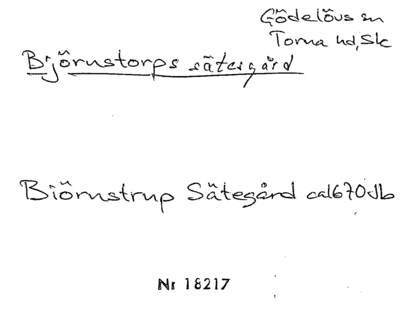 Gödelövs sn
Torna hd, Sk
Björnstorps sätesgård
Biörnstrup Sätegård ca1670 Jb
Nr 18217